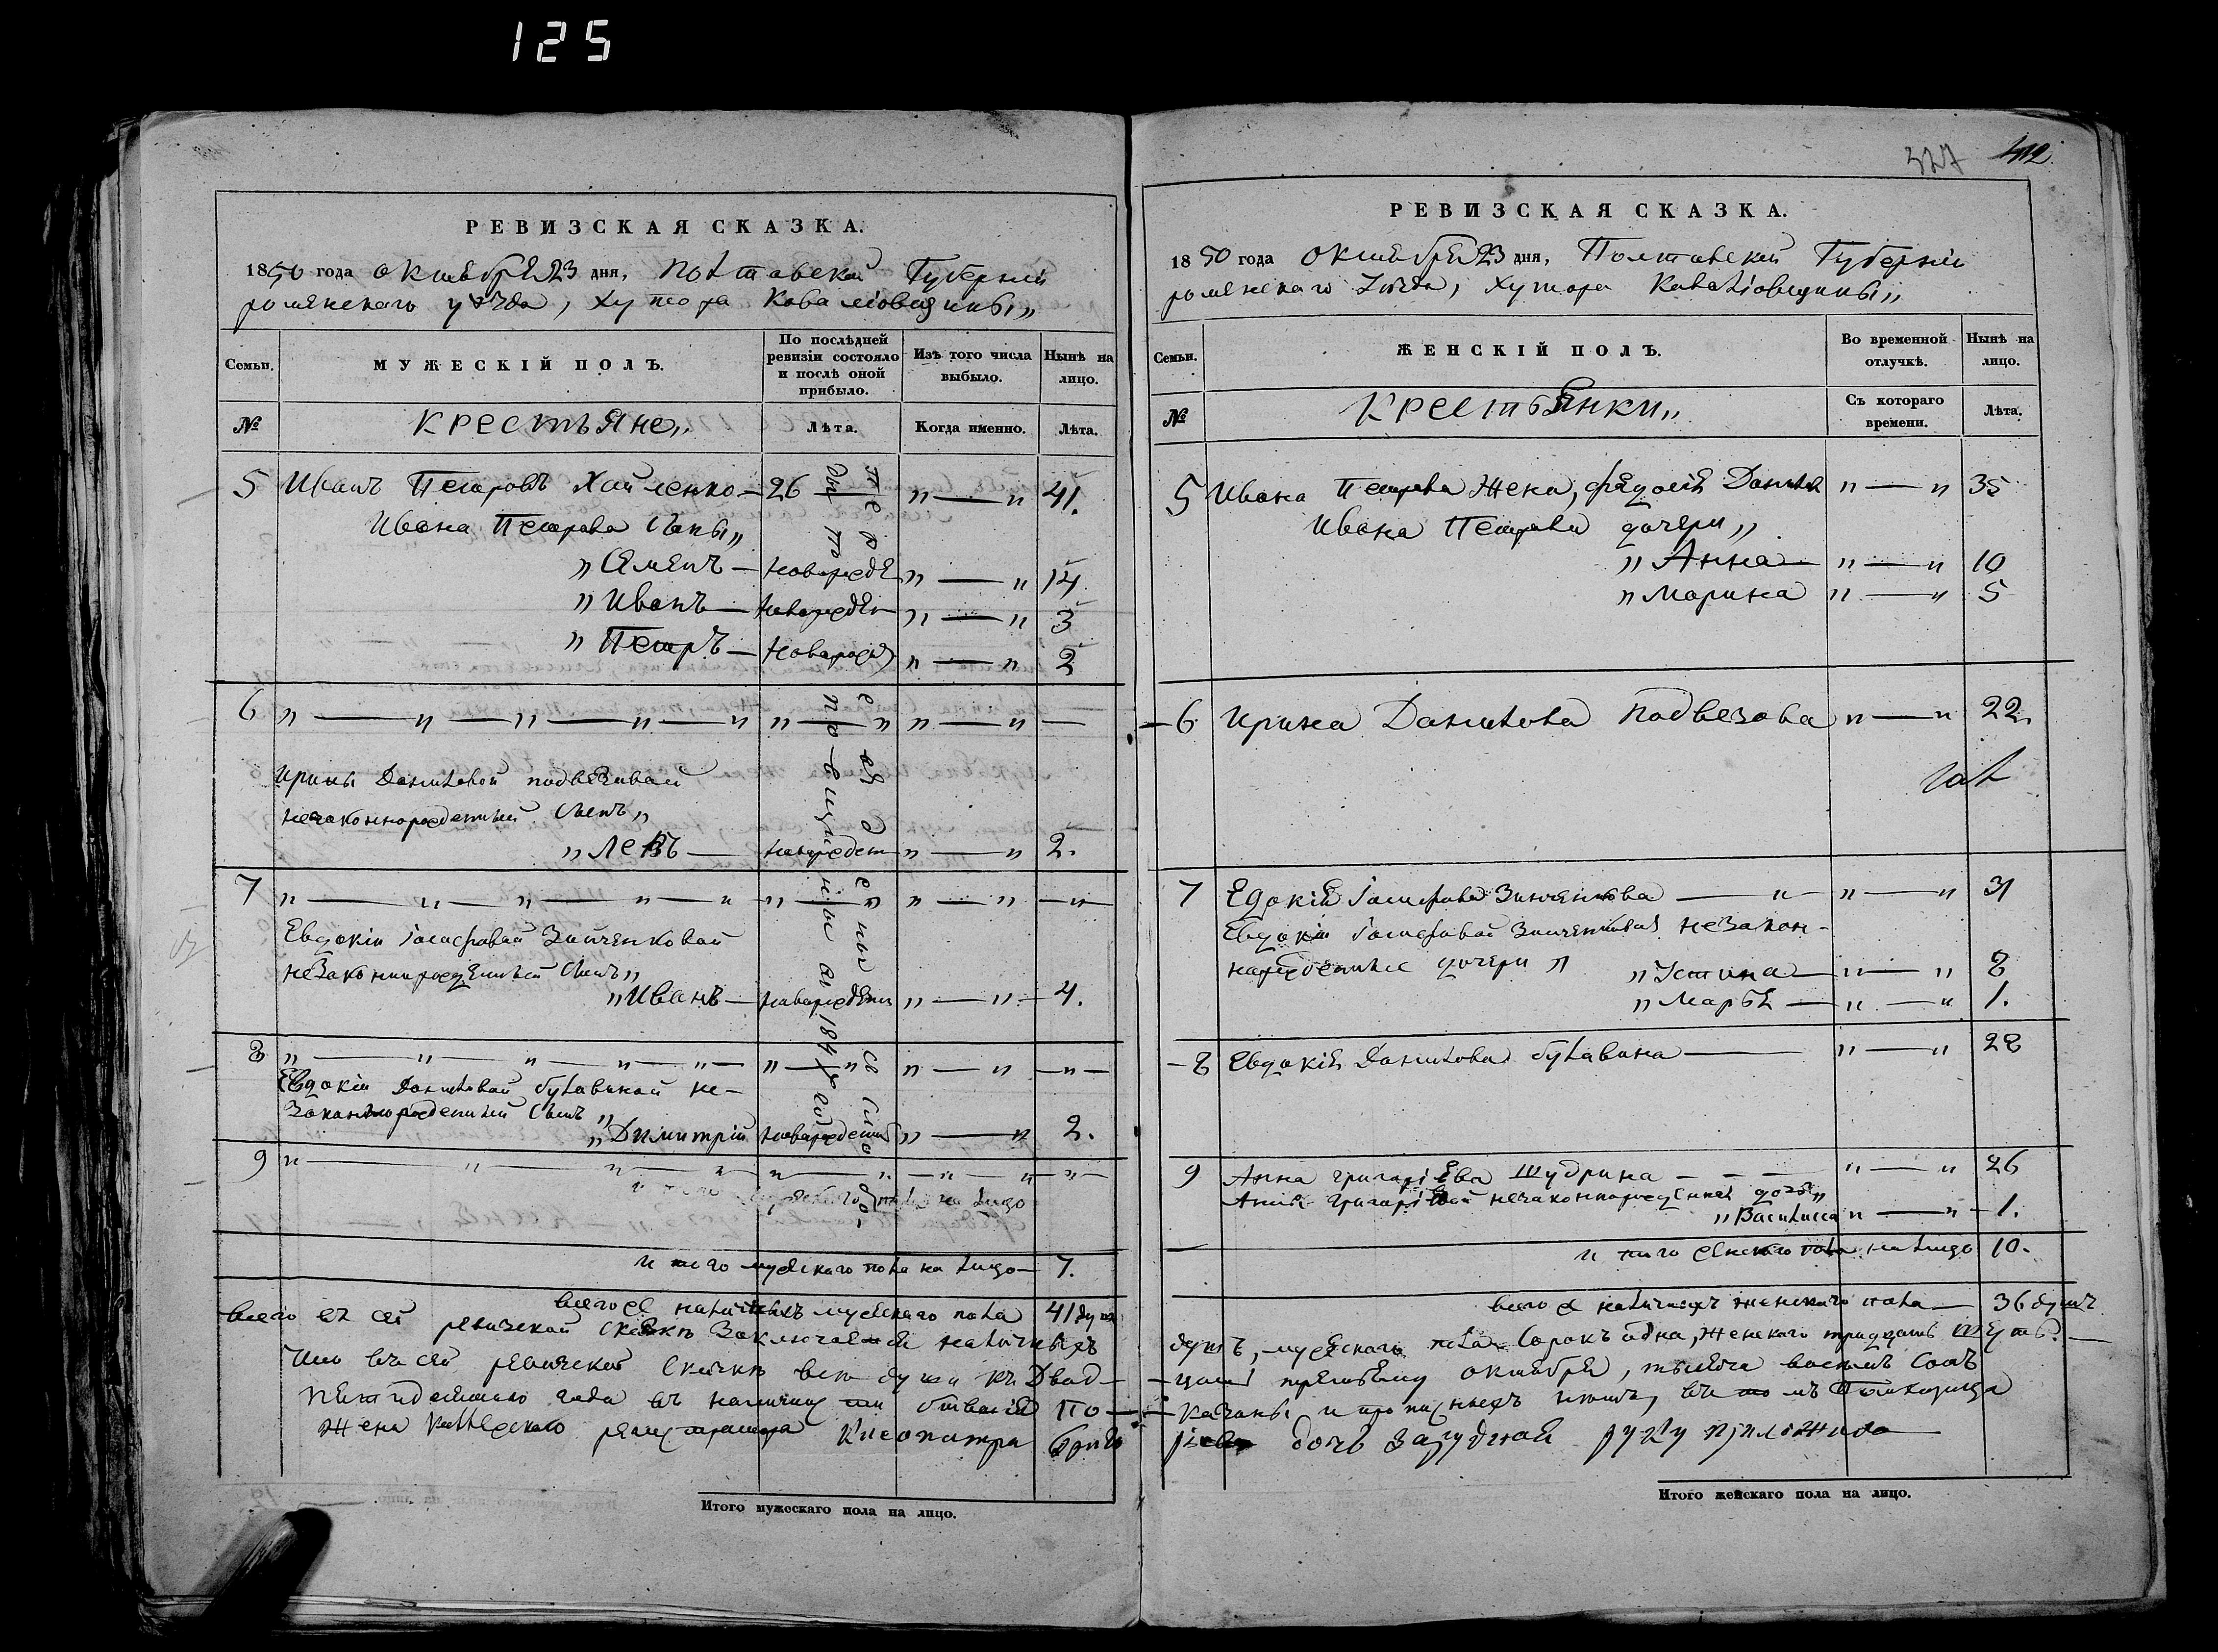 125
РЕВИЗСКАЯ СКАЗКА.
1850 года октября 23 дня, Полтавской Губерніи
роменскаго уѣзда, Хутора Ковалювщины„
Семьи.
МУЖЕСКІЙ ПОЛЪ.
По послѣдней ревизіи состояло и послѣ оной прибыло.
Изъ того числа выбыло.
Нынѣ на лицо.
№
крестьяне„
Лѣта.
Когда именно.
Лѣта.
5 Иванъ Петровъ 26 „ — „ 41.
Ивана Петрова Сыны„
„ Семенъ — новорожде „ — „ 14
„ Иванъ — новорожден „ — „ 3
„ Петръ — новорож „ — „ 2
6 „ — „ — „ — „ — „ „ — „ „ — „ —
Ирины Даниловой подвезовай
незаконнорожденный Сынъ„
„ Левъ — новорожден „ — „ 2.
7 „ — „ — „ — „ — „ „ — „ „ — „ — „ —
Евдокіи Зинченковой
незаконнорожденный Сынъ„
„ Иванъ — новорожденн „ — „ — 4.
8 „ — „ — „ — „ — „ — „ — „ „ — „ — „ —
Евдокіи Даниловай булавиной не-
законнорожденный Сынъ„
„ Димитрій новорожденный „ — „ 2.
9 „ — „ — „ — „ „ — „ — „ — „ „
переведены съ сло
въ провинціи 184 года
на лицо
итого мужескаго пола на лицо — 7.
всего наличныхъ мужескаго пола 41 душ
всего въ сей ревизской сказкѣ заключается наличныхъ
Что въ сей ревизской Сказкѣ всѣ души къ Двад-
пятидесятаго года въ наличии бывшія по-
жена регистратора
Итого мужескаго пола на лицо.
327 412
РЕВИЗСКАЯ СКАЗКА.
1850 года октября 23 дня, Полтавской Губерніи
роменскаго уѣзда, Хутора Ковалювщины„
Семьи.
ЖЕНСКІЙ ПОЛЪ.
Во временной отлучкѣ.
Нынѣ на лицо.
№
крестьянки„
Съ котораго времени.
Лѣта.
5 Ивана Петрова жена, „ — „ 35
Ивана Петрова дочери„
„ Анна „ — „ 10
„ Марина „ — „ 5
6 Ирина Данилова подвезова „ — „ 22.
7 Евдокія Зинченкова — „ — „ — „ 31
Евдокіи Зинченковай незакон-
норожденные дочери „ „ Устина — „ — „ 8
„ Марья — „ — „ 1.
8 Евдокія Данилова булавина — „ — „ 28
9 Анна григоріева Шудрина — — — „ — „ 26
Анны григоріевой незаконнорожденная дочь„
„ Василиса „ — „ 1.
итого женскаго пола на лицо 10.
всего наличныхъ женскаго пола — 36 душъ
душъ, мужескаго пола сорокъ одна, женскаго тридцать шесть. —
цать третьему октября, тысяча восемь сотъ
казаны и прописныхъ нѣтъ, въ томъ помѣщица
дочь руку приложила
Итого женскаго пола на лицо.